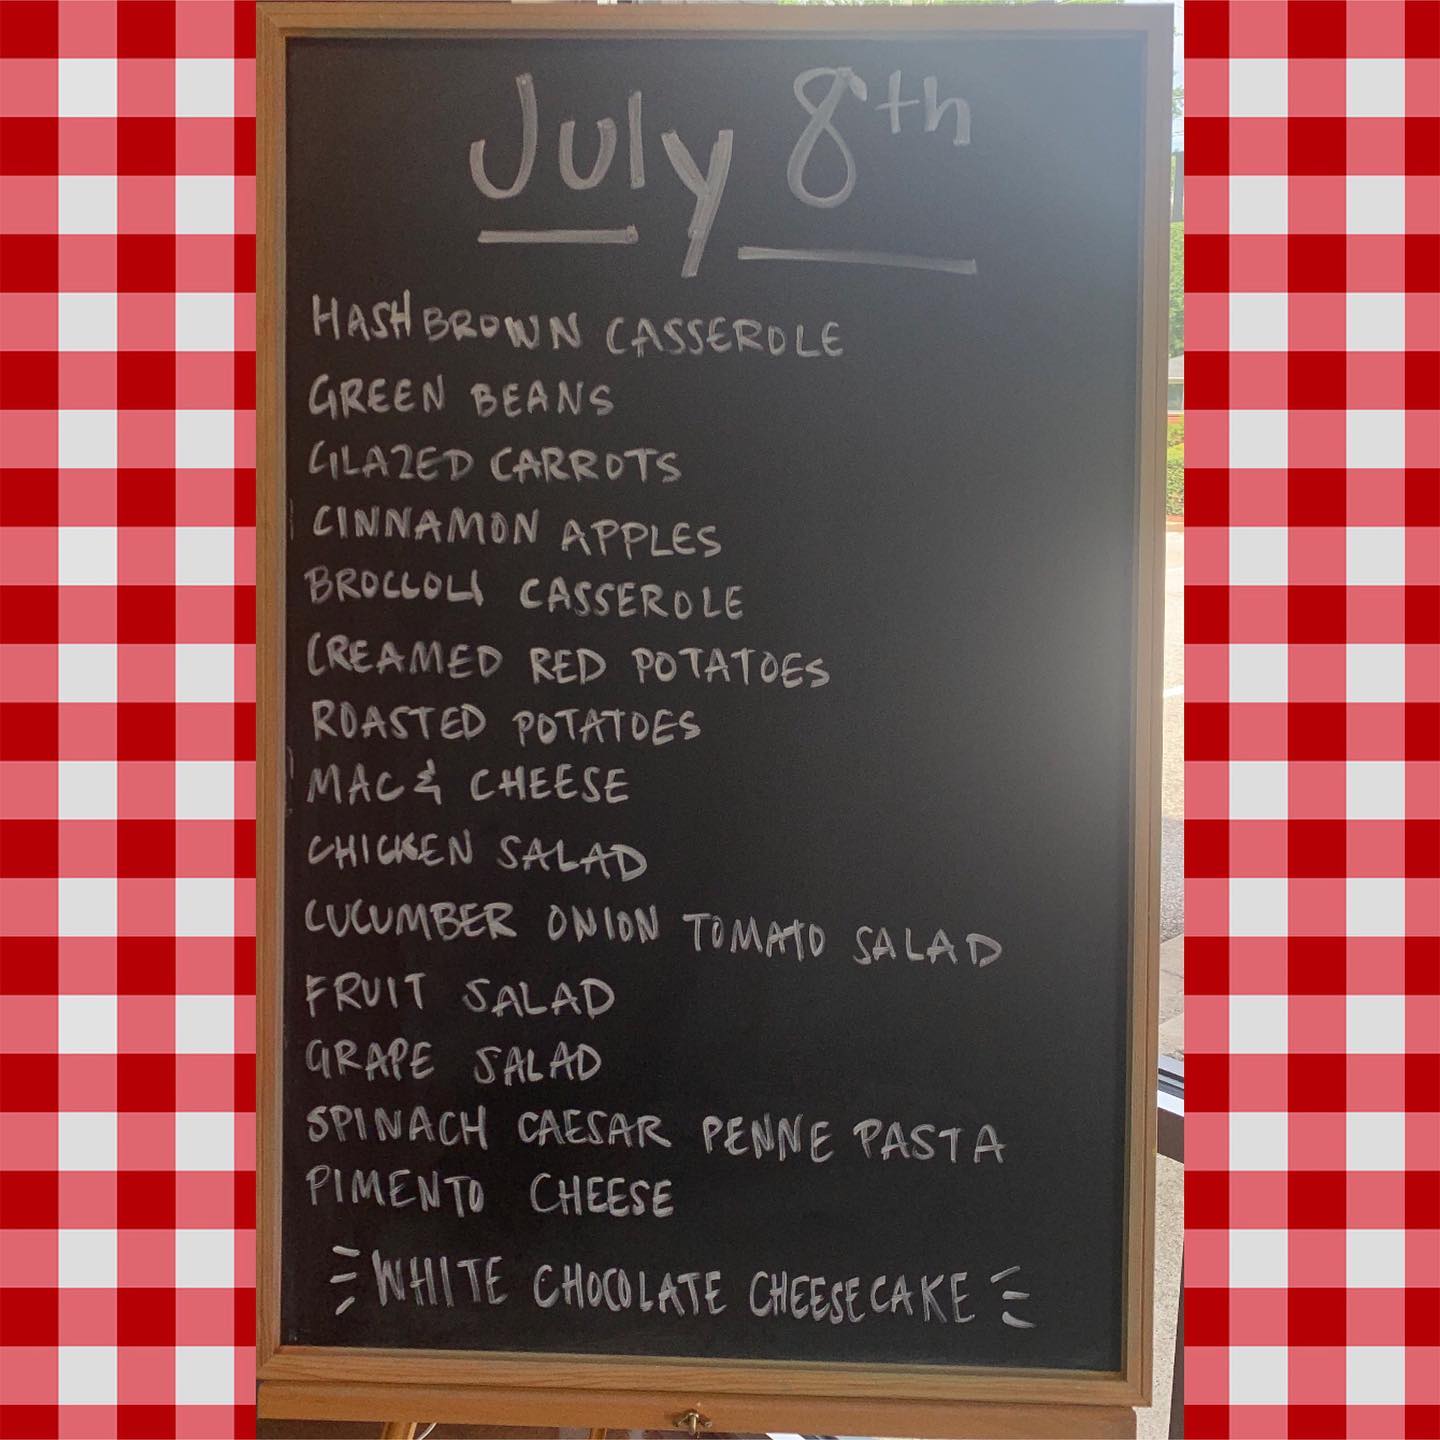 July 8th
HASHBROWN CASSEROLE
GREEN BEANS
GLAZED CARROTS
CINNAMON APPLES
BROCCOLI CASSEROLE
CREAMED RED POTATOES
ROASTED POTATOES
MAC & CHEESE
CHICKEN SALAD
CUCUMBER ONION TOMATO SALAD
FRUIT SALAD
GRAPE SALAD
SPINACH CAESAR PENNE PASTA
PIMENTO CHEESE
WHITE CHOCOLATE CHEESECAKE